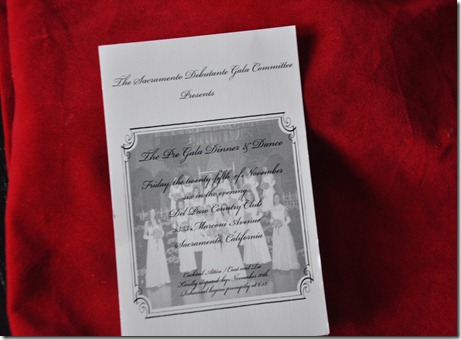 The Sacramento Debutante Gala Committee
Presents
The Pre Gala Dinner & Dance
Friday the twenty fifth of November
six in the evening
Del Paso Country Club
3333 Marconi Avenue
Sacramento, California
Cocktail Attire / Coat and Tie
Kindly respond by November
Rehearsal begins promptly at